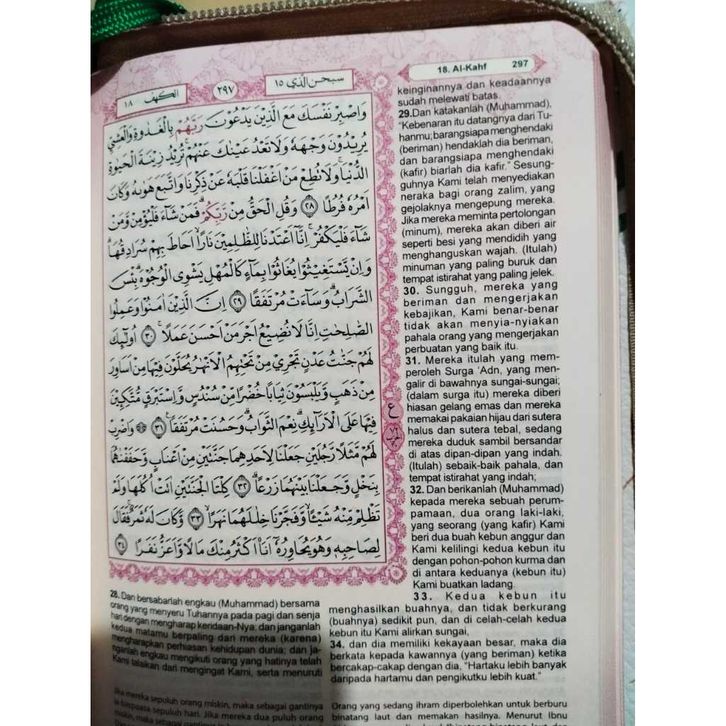 الكهف ١٨
٢٩٧
سبحن الذي ١٥
18. Al-Kahf 297
وَاصْبِرْ نَفْسَكَ مَعَ الَّذِيْنَ يَدْعُوْنَ رَبَّهُمْ بِالْغَدٰوةِ وَالْعَشِيِّ
يُرِيْدُوْنَ وَجْهَهٗ وَلَا تَعْدُ عَيْنٰكَ عَنْهُمْۚ تُرِيْدُ زِيْنَةَ الْحَيٰوةِ
الدُّنْيَاۚ وَلَا تُطِعْ مَنْ اَغْفَلْنَا قَلْبَهٗ عَنْ ذِكْرِنَا وَاتَّبَعَ هَوٰىهُ وَكَانَ
اَمْرُهٗ فُرُطًا ٢٨ وَقُلِ الْحَقُّ مِنْ رَّبِّكُمْۗ فَمَنْ شَاۤءَ فَلْيُؤْمِنْ وَّمَنْ
شَاۤءَ فَلْيَكْفُرْۚ اِنَّآ اَعْتَدْنَا لِلظّٰلِمِيْنَ نَارًاۙ اَحَاطَ بِهِمْ سُرَادِقُهَاۗ
وَاِنْ يَّسْتَغِيْثُوْا يُغَاثُوْا بِمَاۤءٍ كَالْمُهْلِ يَشْوِى الْوُجُوْهَۗ بِئْسَ
الشَّرَابُۗ وَسَاۤءَتْ مُرْتَفَقًا ٢٩ اِنَّ الَّذِيْنَ اٰمَنُوْا وَعَمِلُوا
الصّٰلِحٰتِ اِنَّا لَا نُضِيْعُ اَجْرَ مَنْ اَحْسَنَ عَمَلًاۚ ٣٠ اُولٰۤىِٕكَ
لَهُمْ جَنّٰتُ عَدْنٍ تَجْرِيْ مِنْ تَحْتِهِمُ الْاَنْهٰرُ يُحَلَّوْنَ فِيْهَا مِنْ اَسَاوِرَ
مِنْ ذَهَبٍ وَّيَلْبَسُوْنَ ثِيَابًا خُضْرًا مِّنْ سُنْدُسٍ وَّاِسْتَبْرَقٍ مُّتَّكِـِٕيْنَ
فِيْهَا عَلَى الْاَرَاۤىِٕكِۗ نِعْمَ الثَّوَابُۗ وَحَسُنَتْ مُرْتَفَقًا ٣١ ۞ وَاضْرِبْ
لَهُمْ مَّثَلًا رَّجُلَيْنِ جَعَلْنَا لِاَحَدِهِمَا جَنَّتَيْنِ مِنْ اَعْنَابٍ وَّحَفَفْنٰهُمَا
بِنَخْلٍ وَّجَعَلْنَا بَيْنَهُمَا زَرْعًاۗ ٣٢ كِلْتَا الْجَنَّتَيْنِ اٰتَتْ اُكُلَهَا وَلَمْ
تَظْلِمْ مِّنْهُ شَيْـًٔاۙ وَّفَجَّرْنَا خِلٰلَهُمَا نَهَرًاۙ ٣٣ وَّكَانَ لَهٗ ثَمَرٌۚ فَقَالَ
لِصَاحِبِهٖ وَهُوَ يُحَاوِرُهٗٓ اَنَا۠ اَكْثَرُ مِنْكَ مَالًا وَّاَعَزُّ نَفَرًا ٣٤
ع
28. Dan bersabarlah engkau (Muhammad) bersama
orang yang menyeru Tuhannya pada pagi dan senja
hari dengan mengharap keridaan-Nya; dan janganlah
kedua matamu berpaling dari mereka (karena)
mengharapkan perhiasan kehidupan dunia; dan ja-
nganlah engkau mengikuti orang yang hatinya telah
Kami lalaikan dari mengingat Kami, serta menuruti
keinginannya dan keadaannya
sudah melewati batas.
29.Dan katakanlah (Muhammad),
"Kebenaran itu datangnya dari Tu-
hanmu; barangsiapa menghendaki
(beriman) hendaklah dia beriman,
dan barangsiapa menghendaki
(kafir) biarlah dia kafir." Sesung-
guhnya Kami telah menyediakan
neraka bagi orang zalim, yang
gejolaknya mengepung mereka.
Jika mereka meminta pertolongan
(minum), mereka akan diberi air
seperti besi yang mendidih yang
menghanguskan wajah. (Itulah)
minuman yang paling buruk dan
tempat istirahat yang paling jelek.
30. Sungguh, mereka yang
beriman dan mengerjakan
kebajikan, Kami benar-benar
tidak akan menyia-nyiakan
pahala orang yang mengerjakan
perbuatan yang baik itu.
31. Mereka itulah yang mem-
peroleh Surga 'Adn, yang men-
galir di bawahnya sungai-sungai;
(dalam surga itu) mereka diberi
hiasan gelang emas dan mereka
memakai pakaian hijau dari sutera
halus dan sutera tebal, sedang
mereka duduk sambil bersandar
di atas dipan-dipan yang indah.
(Itulah) sebaik-baik pahala, dan
tempat istirahat yang indah;
32. Dan berikanlah (Muhammad)
kepada mereka sebuah perum-
pamaan, dua orang laki-laki,
yang seorang (yang kafir) Kami
beri dua buah kebun anggur dan
Kami kelilingi kedua kebun itu
dengan pohon-pohon kurma dan
di antara keduanya (kebun itu)
Kami buatkan ladang.
33. Kedua kebun itu
menghasilkan buahnya, dan tidak berkurang
(buahnya) sedikit pun, dan di celah-celah kedua
kebun itu Kami alirkan sungai,
34. dan dia memiliki kekayaan besar, maka dia
berkata kepada kawannya (yang beriman) ketika
bercakap-cakap dengan dia, "Hartaku lebih banyak
daripada hartamu dan pengikutku lebih kuat."
jika mereka sepuluh orang miskin, maka sebagai gantinya
Orang yang sedang ihram diperbolehkan untuk berburu
binatang laut dan memakan hasilnya. Menurut Ibnu